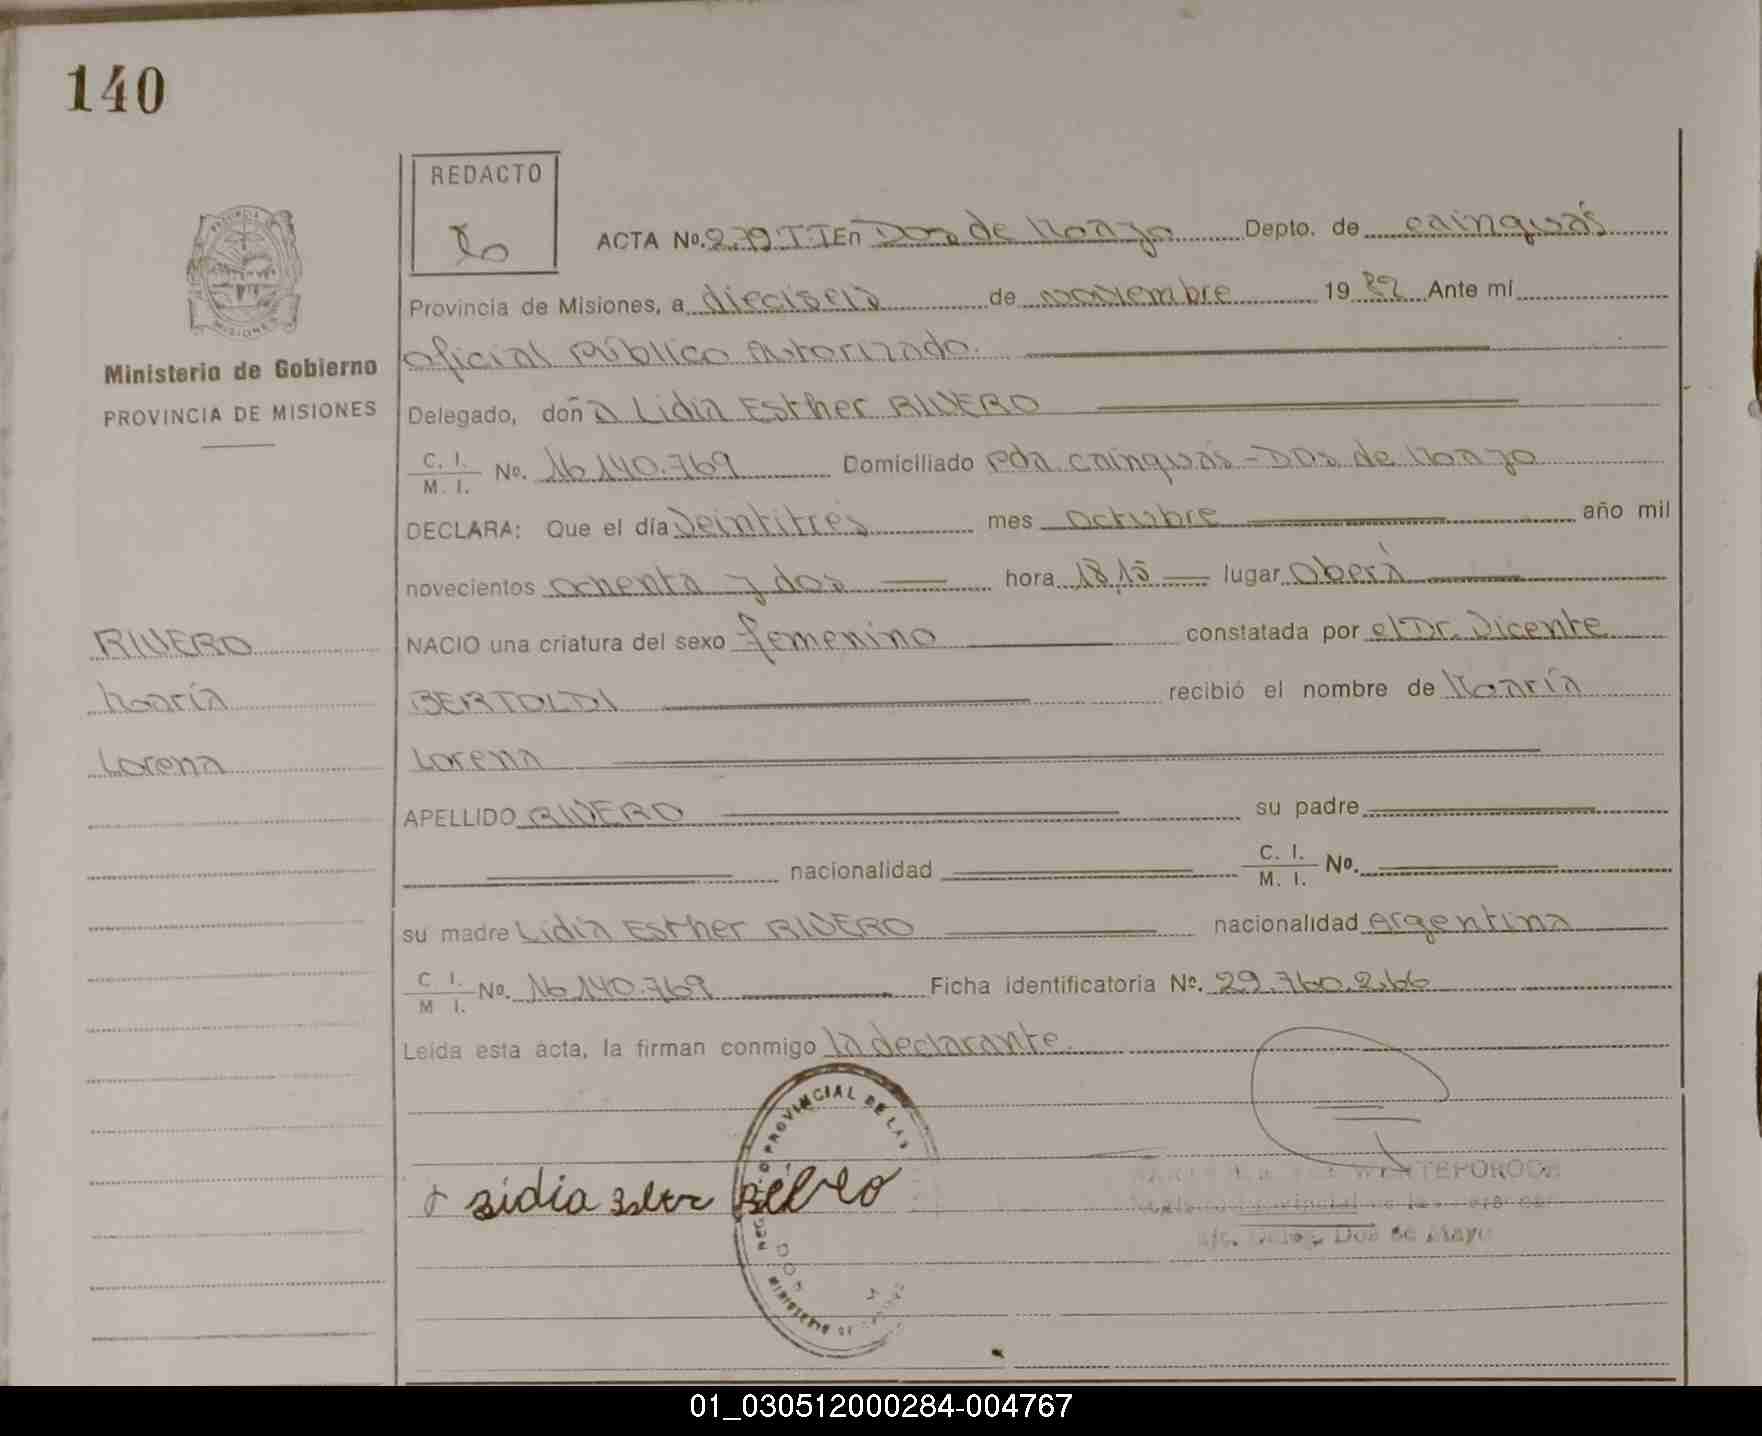 140
REDACTO
ACTA No. 279 T.I En Dos de Mayo Depto. de cainguás
Provincia de Misiones, a dieciseis de noviembre 19 82 Ante mí
oficial Público Autorizado.
Ministerio de Gobierno
PROVINCIA DE MISIONES
Delegado, doña Lidia Esther RIVERO
C. I. / M. I. No. 16.140.769 Domiciliado Pda. cainguás - Dos de Mayo
DECLARA: Que el día Veintitrés mes octubre año mil
novecientos ochenta y dos hora 18,15 lugar Oberá
RIVERO
NACIO una criatura del sexo femenino constatada por el Dr. Vicente
María
BERTOLDI recibió el nombre de María
Lorena
Lorena
APELLIDO RIVERO su padre
nacionalidad C. I. / M. I. No.
su madre Lidia Esther RIVERO nacionalidad Argentina
C I. / M I. No. 16.140.769 Ficha identificatoria No. 29.760.266
Leída esta acta, la firman conmigo la declarante.
PROVINCIAL DE LAS
Dos de Mayo
01_030512000284-004767